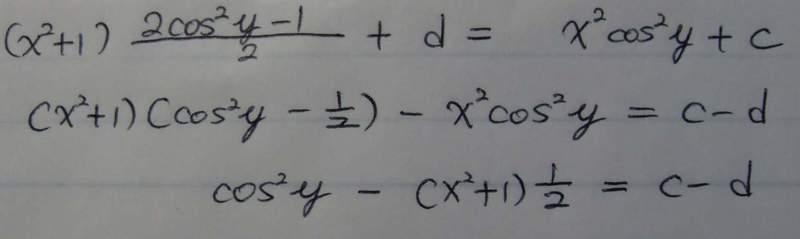 (x²+1) (2cos²y − 1)/2 + d = x²cos²y + c
(x²+1)(cos²y − 1/2) − x²cos²y = c − d
cos²y − (x²+1) 1/2 = c − d